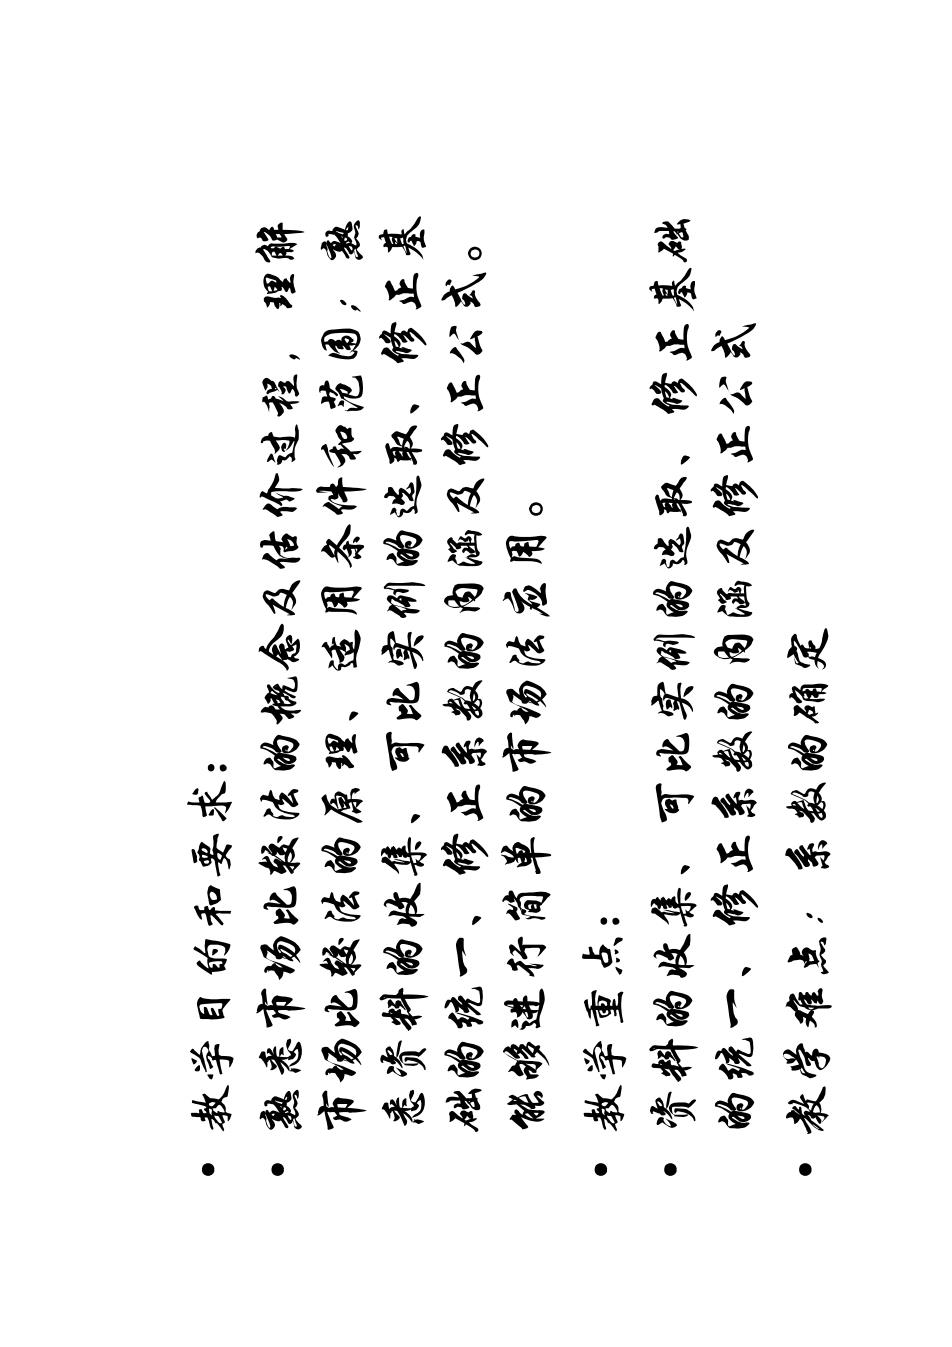 • 教学目的和要求：
• 熟悉市场比较法的概念及估价过程，理解
市场比较法的原理、适用条件和范围；熟
悉资料的收集、可比实例的选取、修正基
础的统一、修正系数的内涵及修正公式。
能够进行简单的市场法应用。
• 教学重点：
• 资料的收集、可比实例的选取、修正基础
的统一、修正系数的内涵及修正公式
• 教学难点：系数的确定